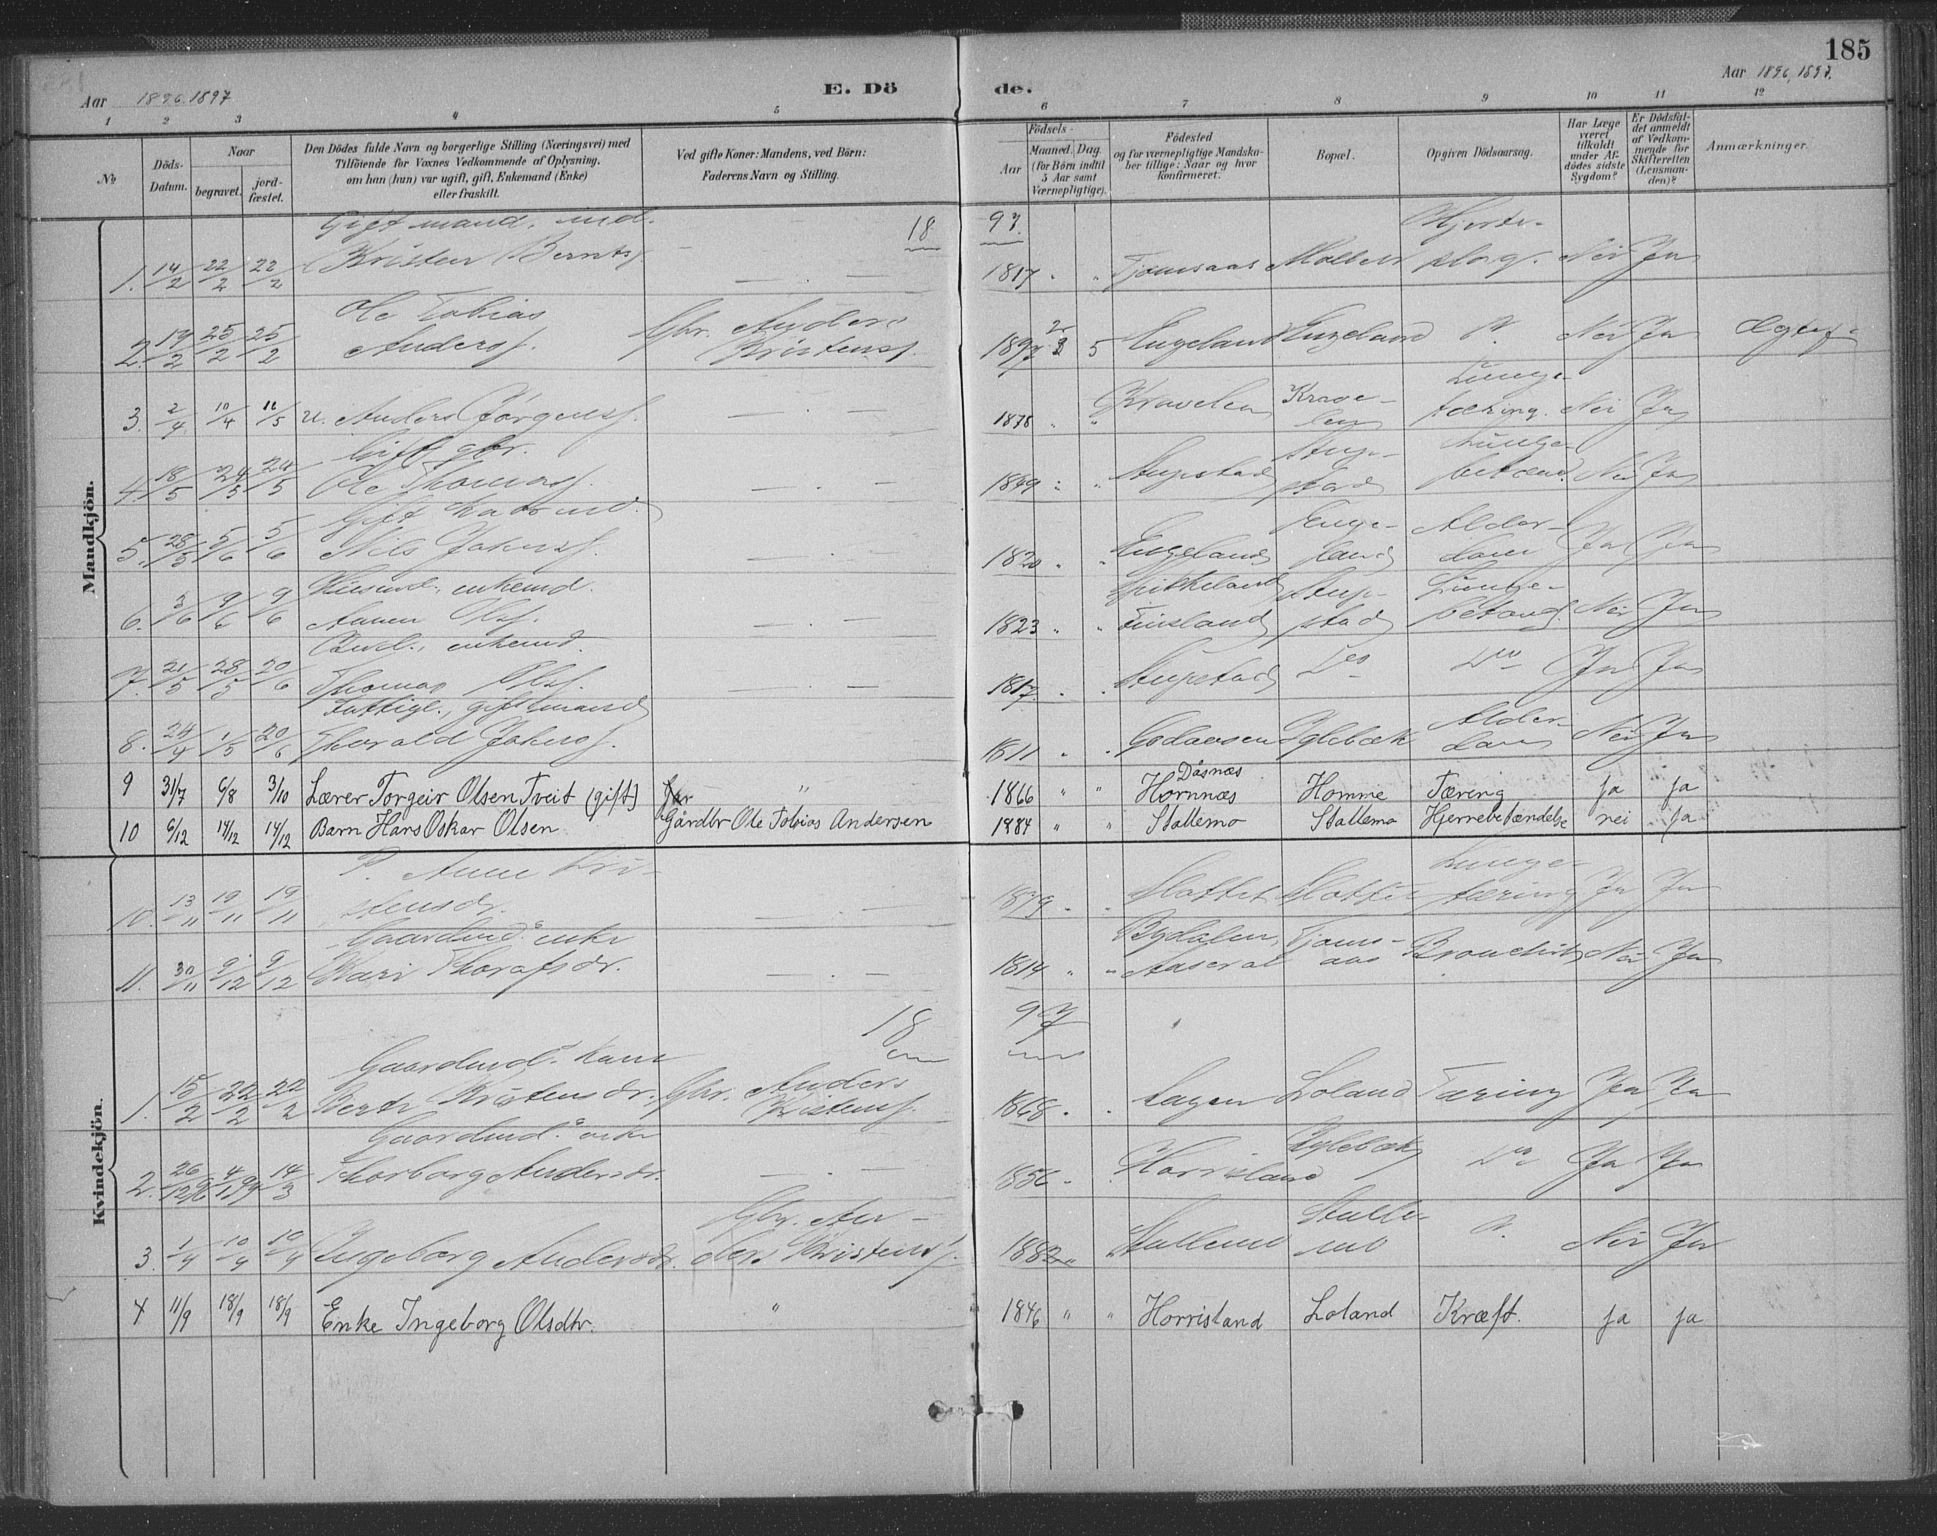 185
Aar 1896. 1897
E. Dö de.
Aar 1896, 1897.
1 2 3 4 5 6 7 8 9 10 11 12
No
Döds-Datum.
Naar
begravet.
jordfæstet.
Den Dödes fulde Navn og borgerlige Stilling (Næringsvei) med
Tilföiende for Voxnes Vedkommende af Oplysning,
om han (hun) var ugift, gift, Enkemand (Enke)
eller fraskilt.
Ved gifte Koner: Mandens, ved Börn:
Faderens Navn og Stilling.
Födsels-
Aar
Maaned. Dag.
(for Børn indtil
5 Aar samt
Værnepligtige).
Födested
og for værnepligtige Mandskaber tillige: Naar og hvor
konfirmeret.
Bopæl.
Opgiven Dödsaarsag.
Har Læge
været
tilkaldt
under Afdödes sidste
Sygdom?
Er Dödsfaldet anmeldt
af Vedkommende for
Skifteretten
(Lensmanden)?
Anmærkninger.
Mandkjön.
18 97.
Gift mand, ind.
1. 14/2 22/2 22/2 Kristen Bernts. 1817 Tjomsaas Hjerteslag. Nei Ja
2. 19/2 25/2 25/2 Ole Tobias Anders. Gbr. Anders Kristens. 1897 5 Engeland Engeland Nei Ja
3. 2/4 10/4 11/5 u. Anders Jörgens. 1878 Kravelen Kravelen Lungetæring. Nei Ja
Gift gbr.
4. 18/5 24/5 24/5 Ole Thomas. 1849 Stupstad Stupstad Lungebetænd. Nei Ja
5. 28/5 5/6 5/6 Nils Jakobs. 1820 Engeland Engeland Alderdom Ja Ja
Husmd., enkemd.
6. 3/6 9/6 9/6 Aanen Ols. 1823 Finsland Stupstad Lungebetænd. Nei Ja
enkemd.
7. 21/5 28/5 20/6 Thomas Ols. 1817 Stupstad Do Do Ja Ja
Fattigl., gift mand
8. 24/4 1/5 20/6 Tharald Jakobs. 1811 Iglebæk Alderdom Nei Ja
9 31/7 6/8 3/10 Lærer Torgeir Olsen Tveit (gift) " 1866 " " Dåsnæs Hornnæs Homme Tæring ja ja
10 6/12 14/12 14/12 Barn Hans Oskar Olsen Gårdbr Ole Tobias Andersen 1884 " " Stallemo Stallemo Hjernebetændelse nei ja
Kvindekjön.
10. 13/11 19/11 19/11 P. Anne Kristensdr. 1879 Slottet Slottet Lungetæring Ja Ja
Gaardmds enke
11. 30/11 9/12 9/12 Kari Tharalsdr. 1814 Bydalen, Aaseral Tjomsaas Bronchit Nei Ja
18 97
Gaardmds kone
1. 15/2 22/2 22/2 Berte Kristensdr. Gbr. Anders Kristens. 1868 Lagen Loland Tæring Ja Ja
Gaardmds enke
2. 26/12 96 4/1 97 14/3 Thorborg Andersdr. 1856 Horrisland Iglebæk Do Ja Ja
3. 1/4 10/4 10/4 Ingeborg Andersdr. Gbr. Anders Kristens. 1882 Stallemo Stallemo Nei Ja
4 11/9 18/9 18/9 Enke Ingeborg Olsdtr. " 1846 " " Horrisland Loland Kræft. ja ja